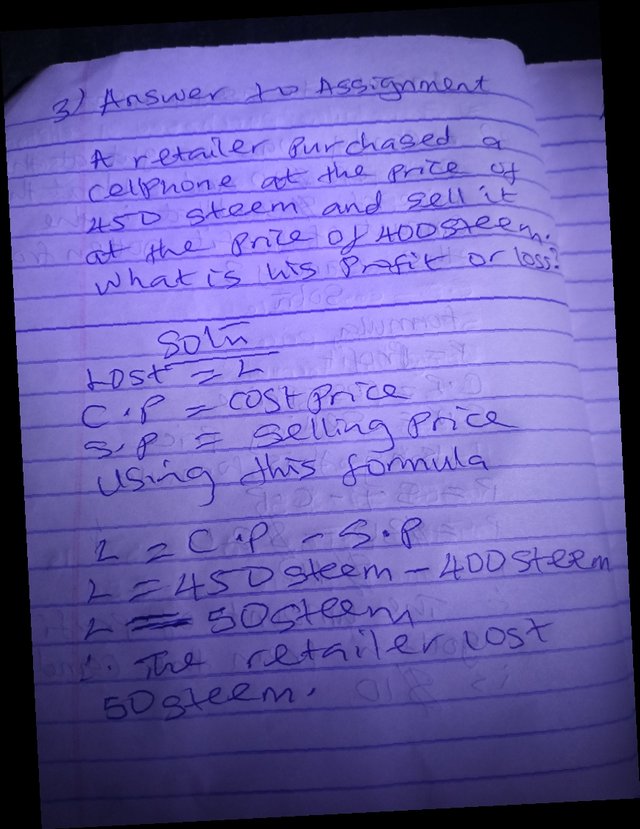 3) Answer to Assignment
A retailer purchased a
cellphone at the price of
450 steem and sell it
at the price of 400 steem.
what is his profit or loss?
Soln
Lost = L
C.P = cost price
S.P = selling price
using this formula
L = C.P - S.P
L = 450 steem - 400 steem
L = 50 steem
∴ The retailer lost
50 steem.